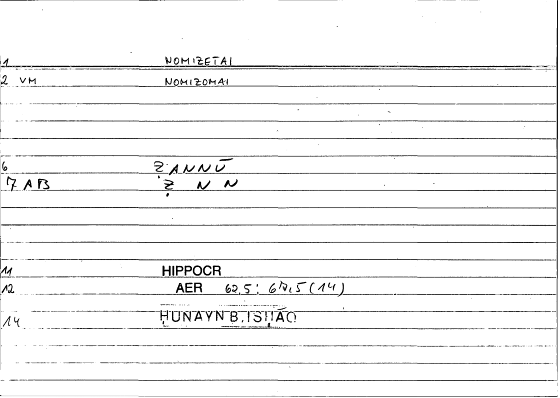 1 NOMIZETAI
2 VM NOMIZOMAI
6 ẒANNŪ
7 AB Ẓ N N
11 HIPPOCR
12 AER 62,5: 67,5 (14)
14 ḤUNAYN B. ISḤĀQ